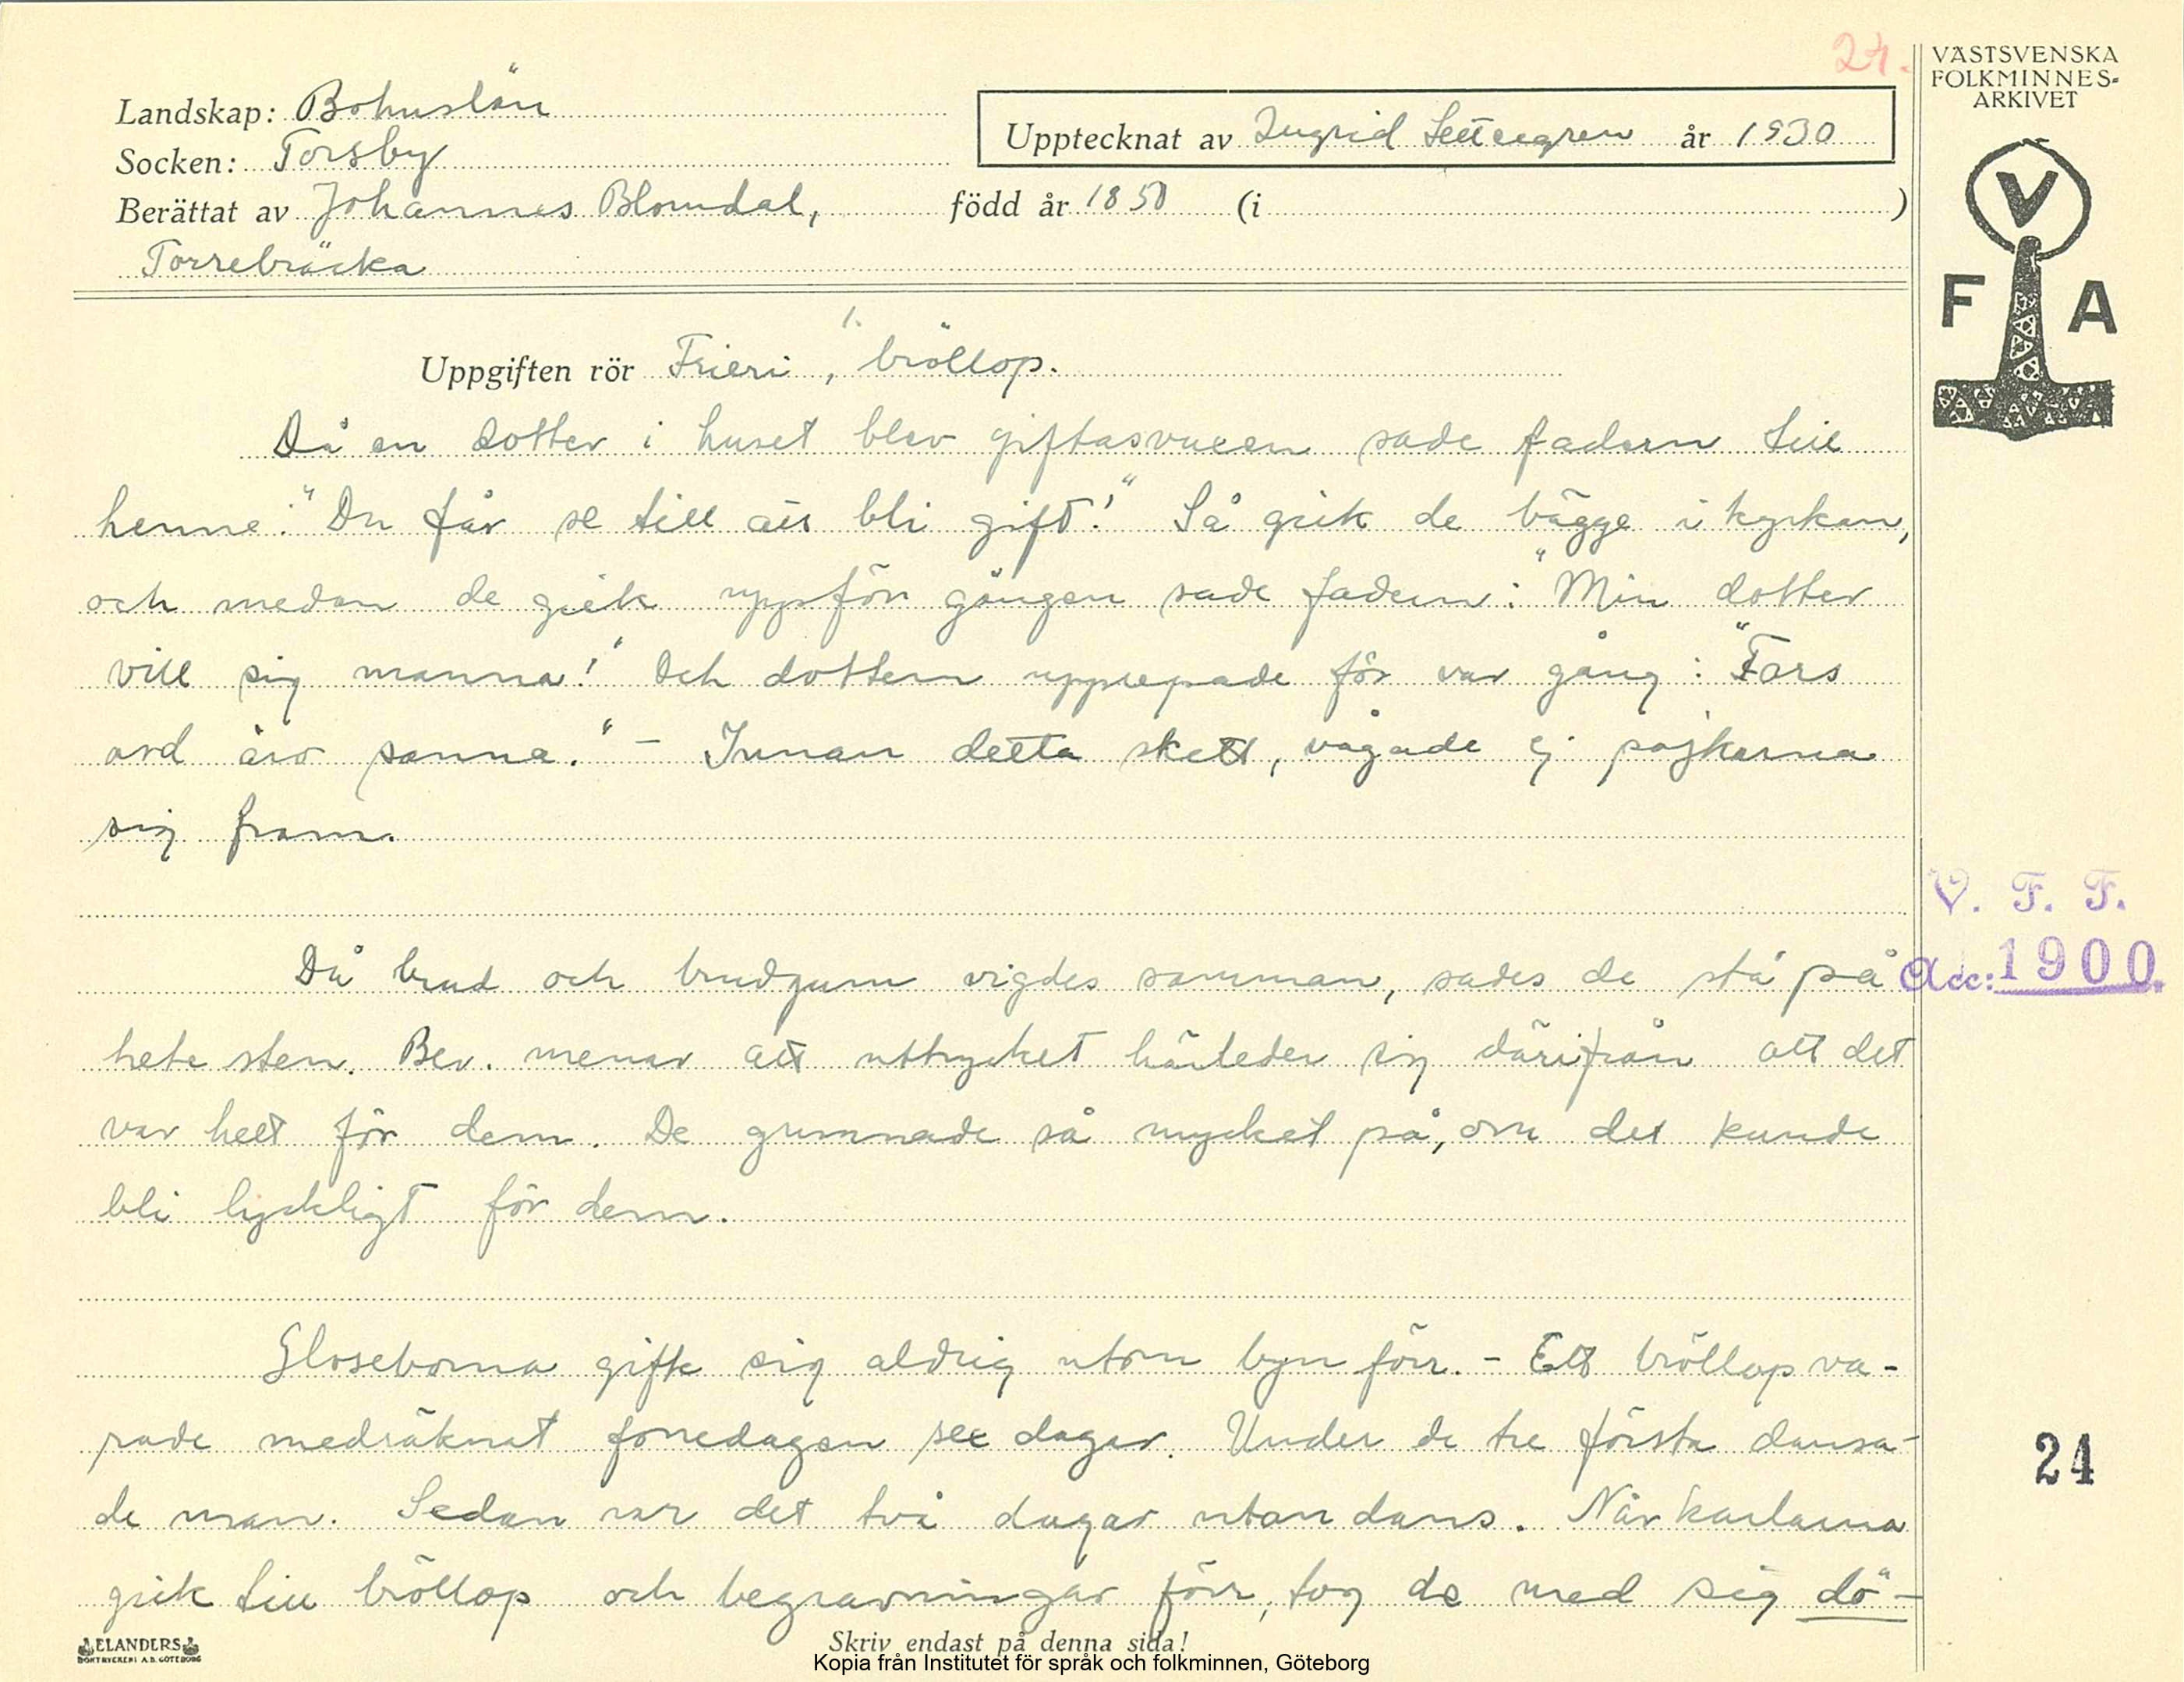 24.
VÄSTSVENSKA
FOLKMINNES-
ARKIVET
Landskap: Bohuslän
Upptecknat av Ingrid Settergren år 1930
Socken: Torsby
Berättat av Johannes Blomdal, född år 1850 (i )
Torrebräcka
V
F A
1.
Uppgiften rör Frieri, bröllop.
Då en dotter i huset blev giftasvuxen sade fadern till
henne: "Du får se till att bli gift!" Så gick de bägge i kyrkan,
och medan de gick uppför gången sade fadern: "Min dotter
vill sig manna!" Och dottern upprepade för var gång: "Fars
ord äro sanna." – Innan detta skett, vågade ej pojkarna
sig fram.
V. F. F.
Då brud och brudgum vigdes samman, sades de stå på
Acc: 1900.
hete sten. Ber. menar att uttrycket härleder sig därifrån att det
var hett för dem. De grunnade så mycket på, om det kunde
bli lyckligt för dem.
Gloseborna gifte sig aldrig utom byn förr. – Ett bröllop va-
rade medräknat fonedagen sex dagar. Under de tre första dansa-
24
de man. Sedan var det två dagar utan dans. När karlarna
gick till bröllop och begravningar förr, tog de med sig dö-
ELANDERS
BOKTRYCKERI A.B. GÖTEBORG
Skriv endast på denna sida!
Kopia från Institutet för språk och folkminnen, Göteborg